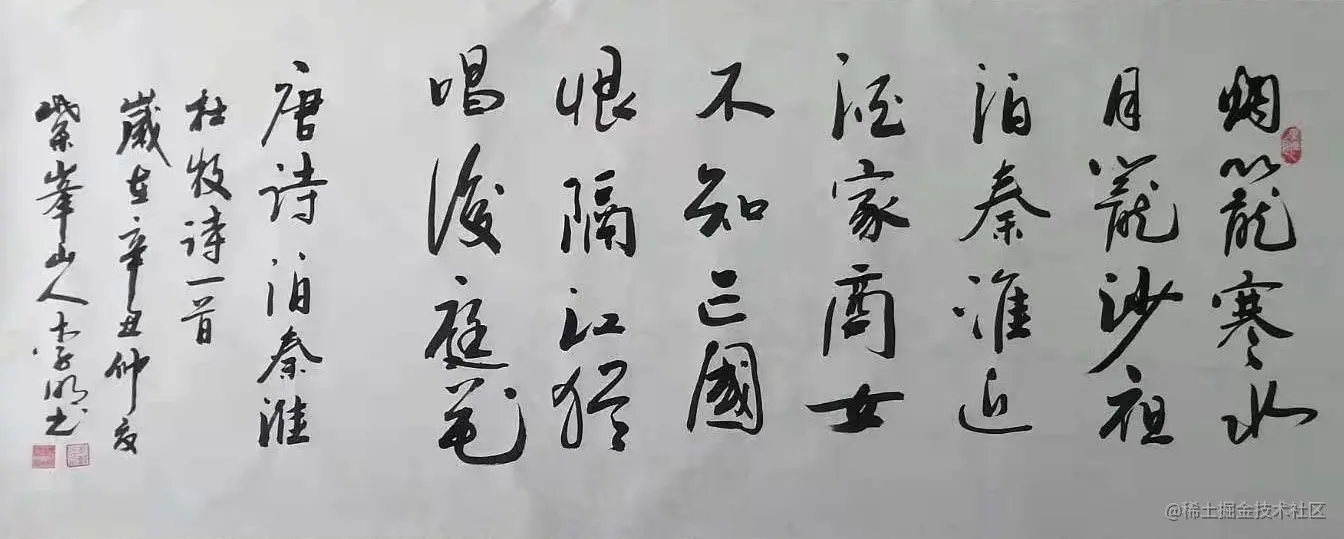 烟籠寒水
月籠沙祖
泊秦淮近
酒家商女
不知亡國
恨隔江猶
唱後庭花
唐诗泊秦淮
杜牧诗一首
歲在辛丑仲夏
紫峯山人李明书
@稀土掘金技术社区